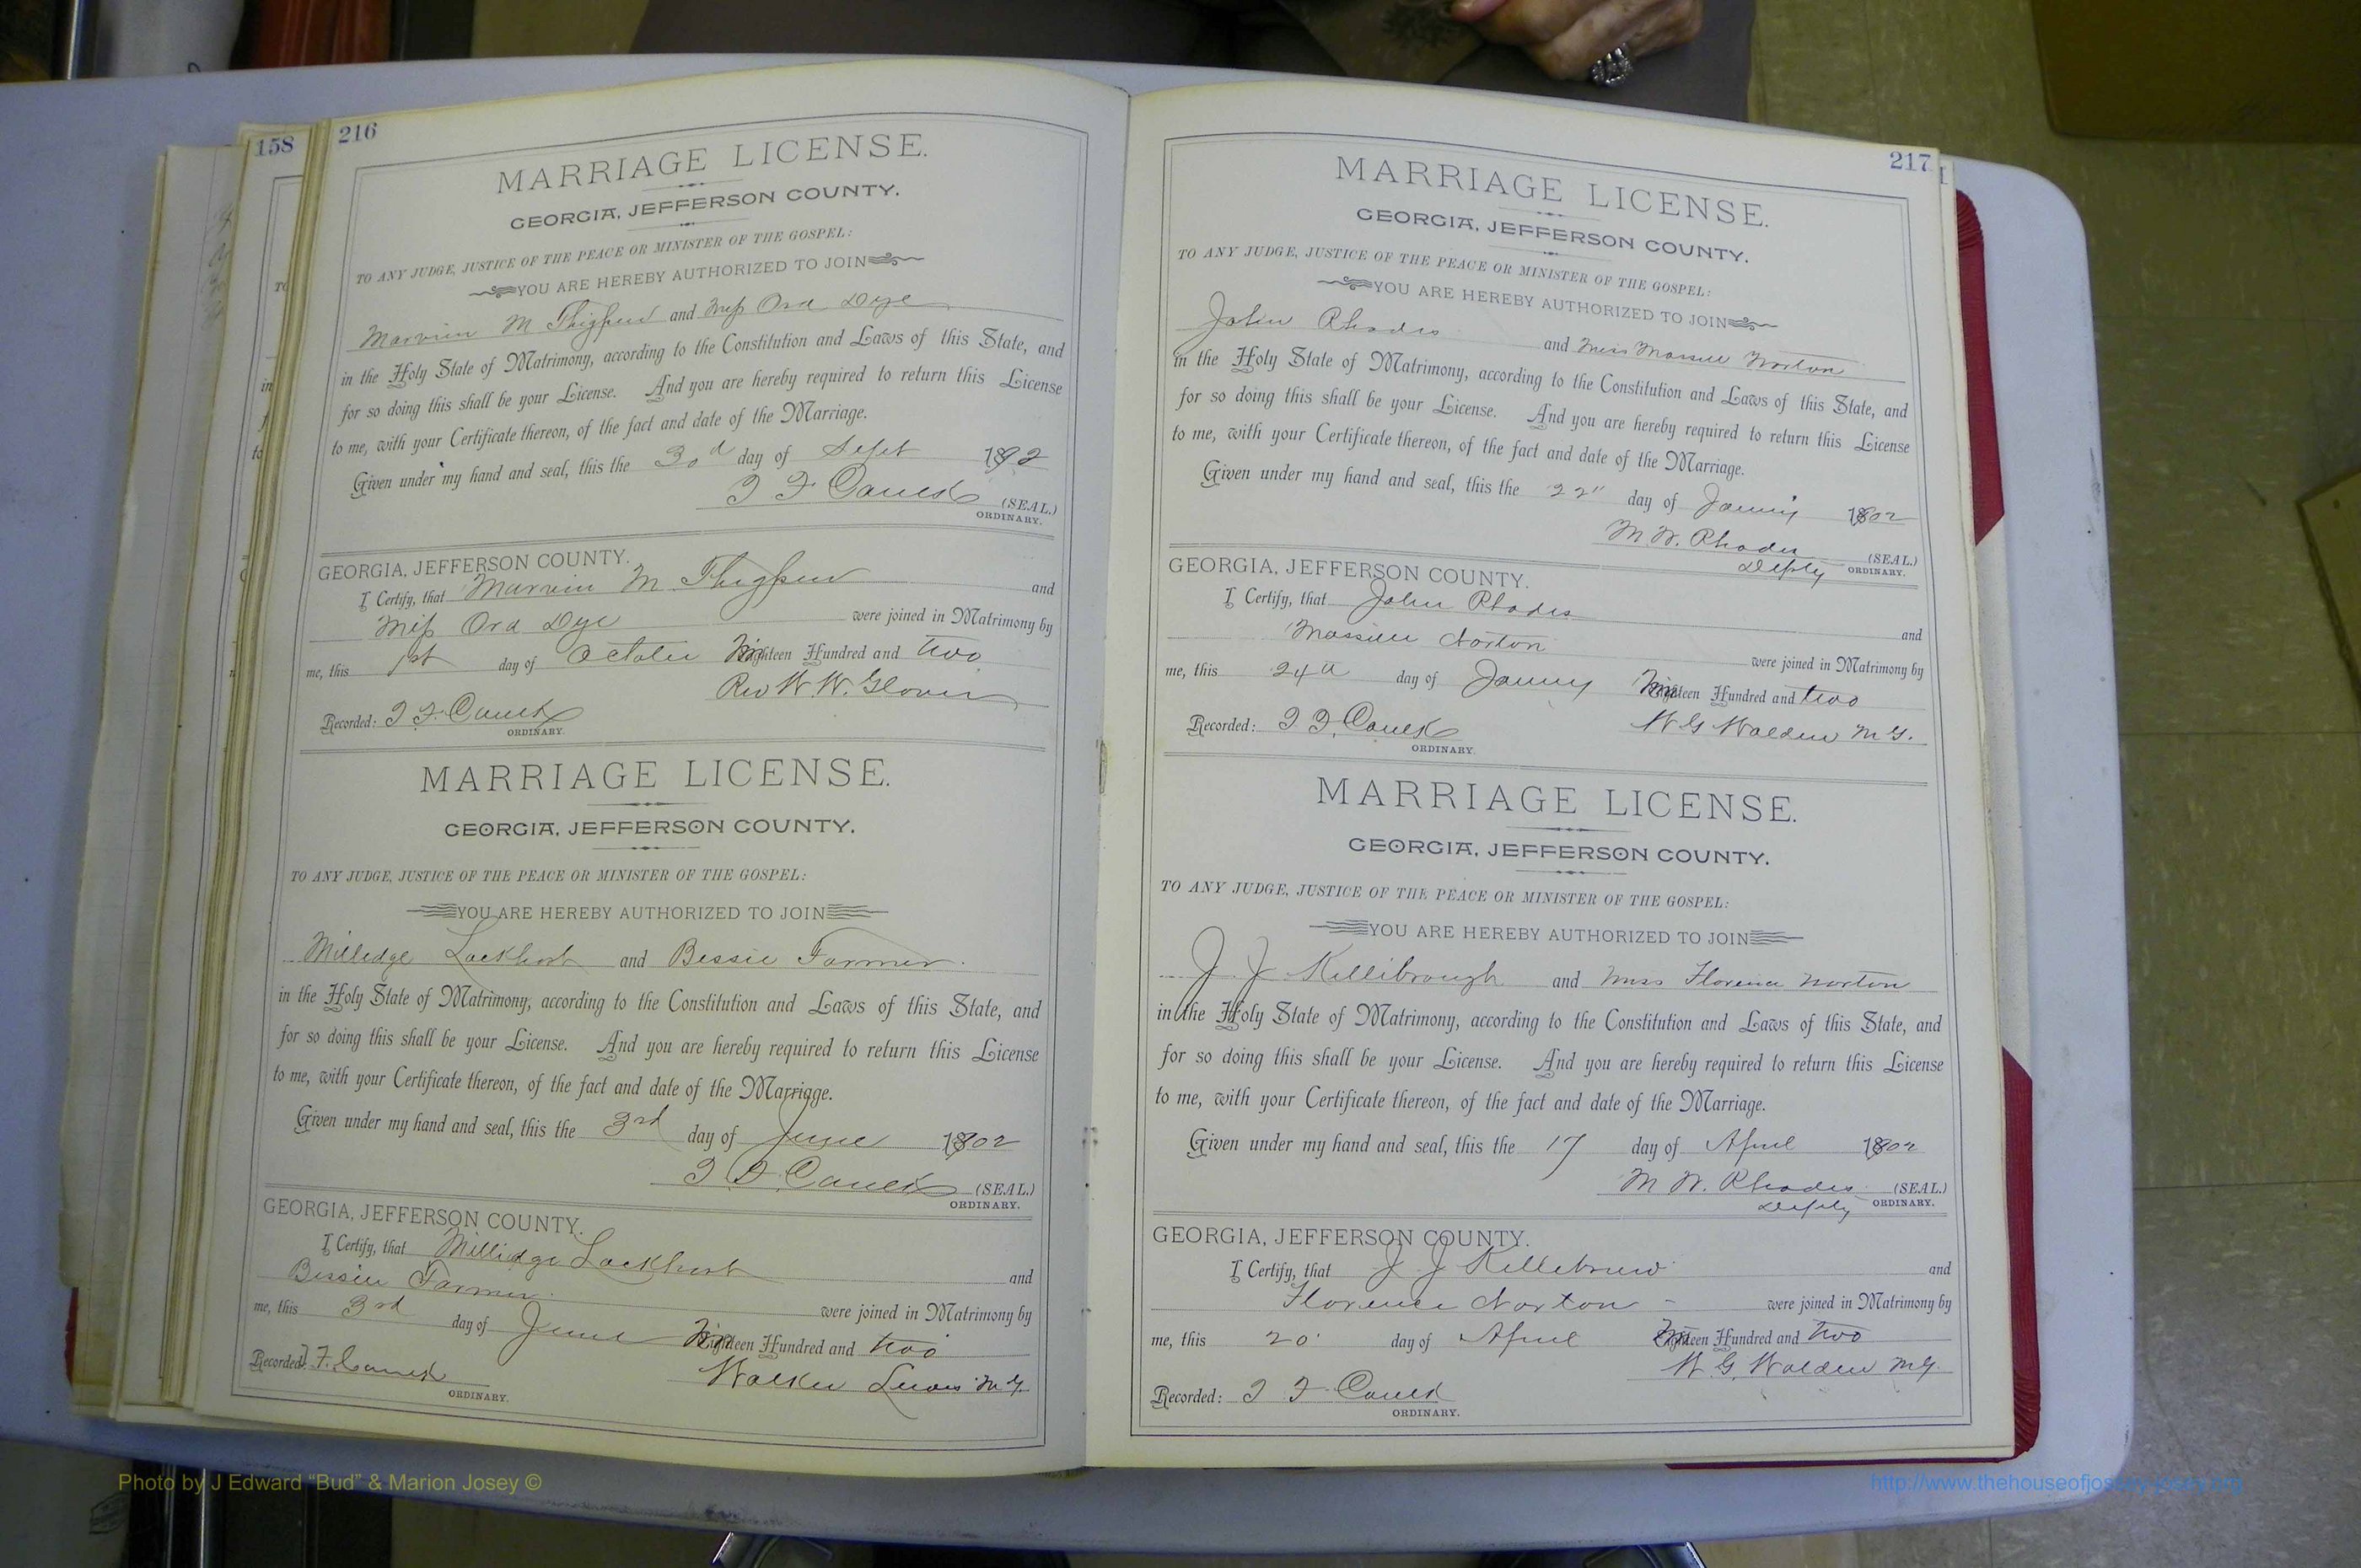 158
216
MARRIAGE LICENSE.
GEORGIA, JEFFERSON COUNTY.
TO ANY JUDGE, JUSTICE OF THE PEACE OR MINISTER OF THE GOSPEL:
YOU ARE HEREBY AUTHORIZED TO JOIN
Marvin M Thigpen and Miss Ora Dye
in the Holy State of Matrimony, according to the Constitution and Laws of this State, and
for so doing this shall be your License. And you are hereby required to return this License
to me, with your Certificate thereon, of the fact and date of the Marriage.
Given under my hand and seal, this the 30d day of Sept 1902
(SEAL.)
ORDINARY.
GEORGIA, JEFFERSON COUNTY.
I Certify, that Marvin M. Thigpen and
Miss Ora Dye were joined in Matrimony by
me, this 1st day of October Nineteen Hundred and two
Rev W. W. Glover
Recorded:
ORDINARY.
MARRIAGE LICENSE.
GEORGIA, JEFFERSON COUNTY.
TO ANY JUDGE, JUSTICE OF THE PEACE OR MINISTER OF THE GOSPEL:
YOU ARE HEREBY AUTHORIZED TO JOIN
Milledge Lockhart and Bessie Farmer
in the Holy State of Matrimony, according to the Constitution and Laws of this State, and
for so doing this shall be your License. And you are hereby required to return this License
to me, with your Certificate thereon, of the fact and date of the Marriage.
Given under my hand and seal, this the 3rd day of June 1902
(SEAL.)
ORDINARY.
GEORGIA, JEFFERSON COUNTY.
I Certify, that Millidge Lockhart and
Bessie Farmer were joined in Matrimony by
me, this 3rd day of June Nineteen Hundred and two
Walker Lewis M.G.
Recorded:
ORDINARY.
217
MARRIAGE LICENSE.
GEORGIA, JEFFERSON COUNTY.
TO ANY JUDGE, JUSTICE OF THE PEACE OR MINISTER OF THE GOSPEL:
YOU ARE HEREBY AUTHORIZED TO JOIN
John Rhodes and Miss Norton
in the Holy State of Matrimony, according to the Constitution and Laws of this State, and
for so doing this shall be your License. And you are hereby required to return this License
to me, with your Certificate thereon, of the fact and date of the Marriage.
Given under my hand and seal, this the 22" day of 1902
M. W. Rhodes (SEAL.)
Depty ORDINARY.
GEORGIA, JEFFERSON COUNTY.
I Certify, that John Rhodes and
Norton were joined in Matrimony by
me, this 24th day of Nineteen Hundred and two
W G Walden M G.
Recorded:
ORDINARY.
MARRIAGE LICENSE.
GEORGIA, JEFFERSON COUNTY.
TO ANY JUDGE, JUSTICE OF THE PEACE OR MINISTER OF THE GOSPEL:
YOU ARE HEREBY AUTHORIZED TO JOIN
J. J. Killibrough and Miss Florence Norton
in the Holy State of Matrimony, according to the Constitution and Laws of this State, and
for so doing this shall be your License. And you are hereby required to return this License
to me, with your Certificate thereon, of the fact and date of the Marriage.
Given under my hand and seal, this the 17 day of April 1902
M. W. Rhodes (SEAL.)
Depty ORDINARY.
GEORGIA, JEFFERSON COUNTY.
I Certify, that J J Killebrew and
Florence Norton were joined in Matrimony by
me, this 20 day of April Nineteen Hundred and two
W. G. Walden M.G.
Recorded:
ORDINARY.
Photo by J Edward “Bud” & Marion Josey ©